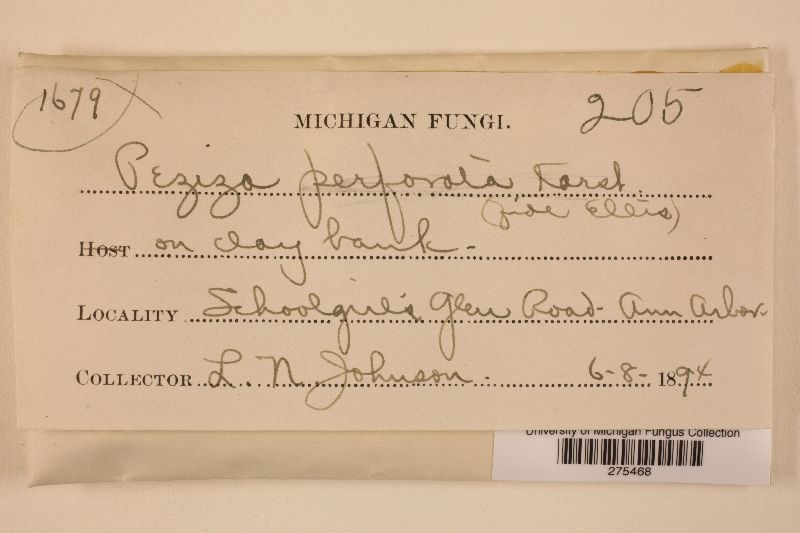 1679
MICHIGAN FUNGI.
205
Peziza perforata Karst.
(fide Ellis)
HOST on clay bank -
LOCALITY Schoolgirl's Glen Road - Ann Arbor
COLLECTOR L. N. Johnson - 6-8- 1894
University of Michigan Fungus Collection
275468